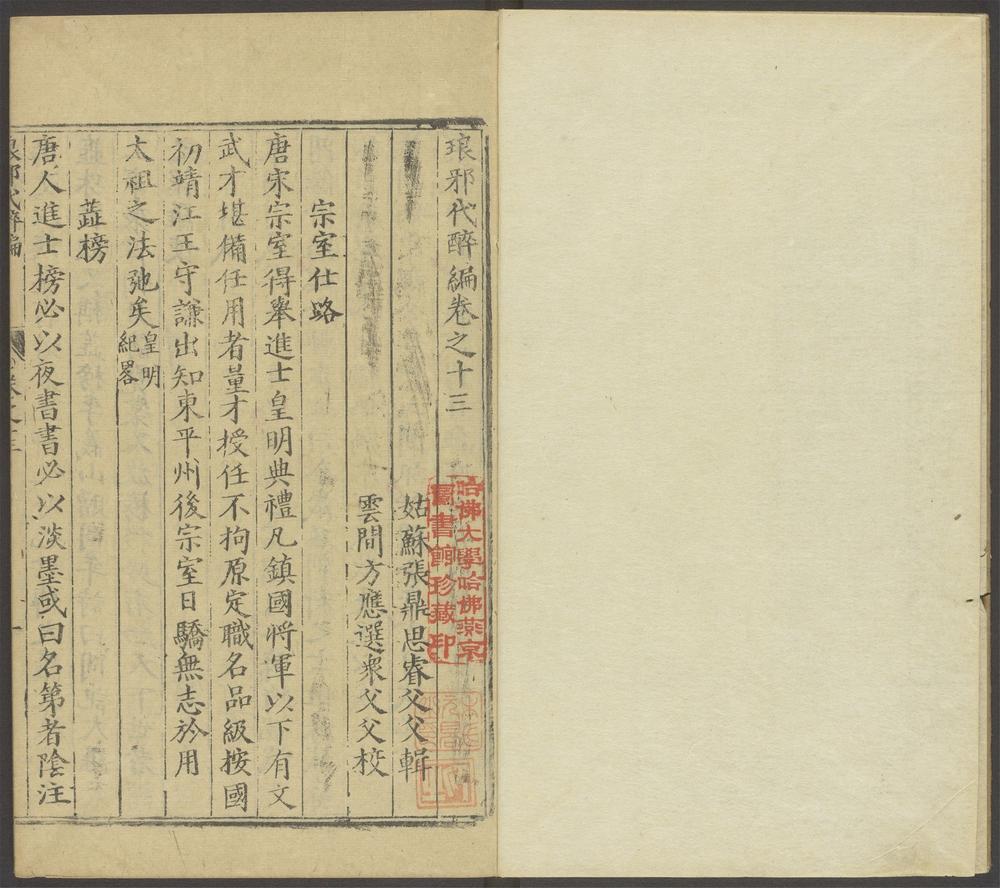 琅邪代醉編卷之十三
姑蘇張鼎思睿父父輯
雲間方應選衆父父校
宗室仕路
唐宋宗室得舉進士皇明典禮凡鎮國將軍以下有文
武才堪備任用者量才授任不拘原定職名品級按國
初靖江王守謙出知東平州後宗室日驕無志於用
太祖之法弛矣皇明紀畧
蘂榜
唐人進士榜必以夜書書必以淡墨或曰名第者陰注
琅邪代醉編
哈佛大學哈佛燕京
圖書館珍藏印